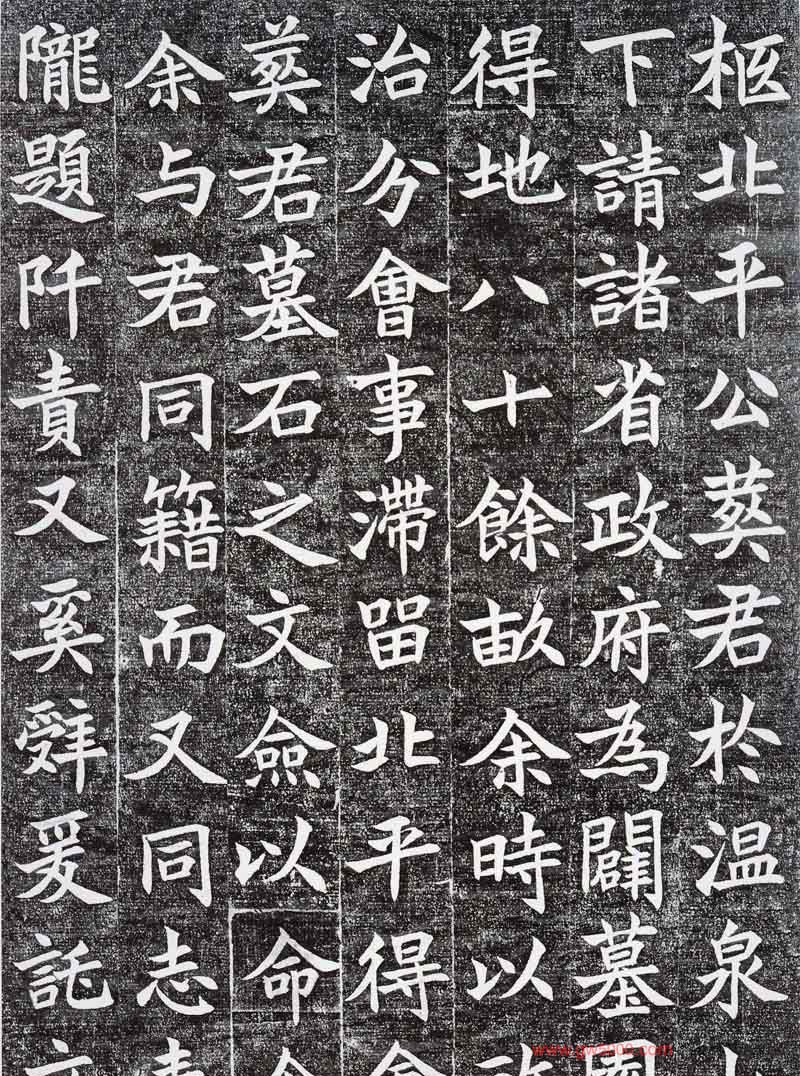 柩北平公葬君於温泉
下請諸省政府為闢墓
得地八十餘畝余時以
治分會事滯留北平得
葬君墓石之文僉以命
余与君同籍而又同志
隴題阡責又奚辤爰託